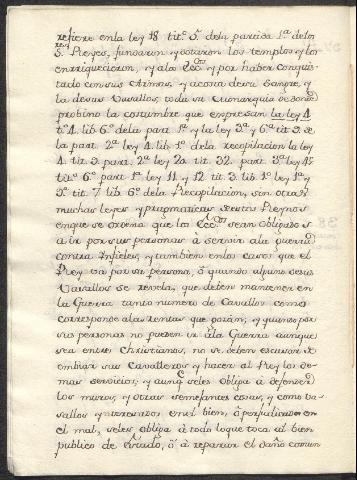 refiere enla ley 18 titº 5º dela partida 1ª delos
5. Reyes, fundaron y dotaron los templos y los
enrriquecieron, y alos Eccºˢ y por haber conquis
tado con sus Armas, y acosta de su Sangre, y
la desus Vasallos, toda su Monarquia de donde
probino la costumbre que expresan la ley 4
tº 4. lib. 6º dela part. 1ª y la ley 3ª y 6ª tit. 3. de
la part. 2ª ley 4. lib. 1º dela recopilacion la ley
4. tit. 3. part. 2ª ley 20. tit. 32. part. 3ª ley 4ª
titº 6º part. 1ª ley 11 y 12 tit. 3. lib. 1º ley 1ª y
3ª tit. 7. lib. 6º dela Recopilacion, sin otras
muchas leyes y pragmaticas destos Reynos
enque se ordena que los Eccºˢ sean obligados
a ir por sus personas a servir ala guerra
contra Infieles, y tambien enlos casos que el
Rey va por su persona, ó quando alguno desus
Vasallos se revela, que deben mantener en
la Guerra tanto numero de Cavallos como
corresponde alas rentas que gozan; y quando por
sus personas no pueden ir ála Guerra aunque
sea entre Christianos, no se deben escusar de
embiar sus Cavalleros y hacer al Rey los de
mas servicios; y aunq seles obliga á defender
los muros, y otras semejantes cosas, y como va-
sallos y interesados en el bien, ó perjudicados en
el mal, seles obliga á todo loque toca al bien
publico de Estado, ó á reparar el daño comun